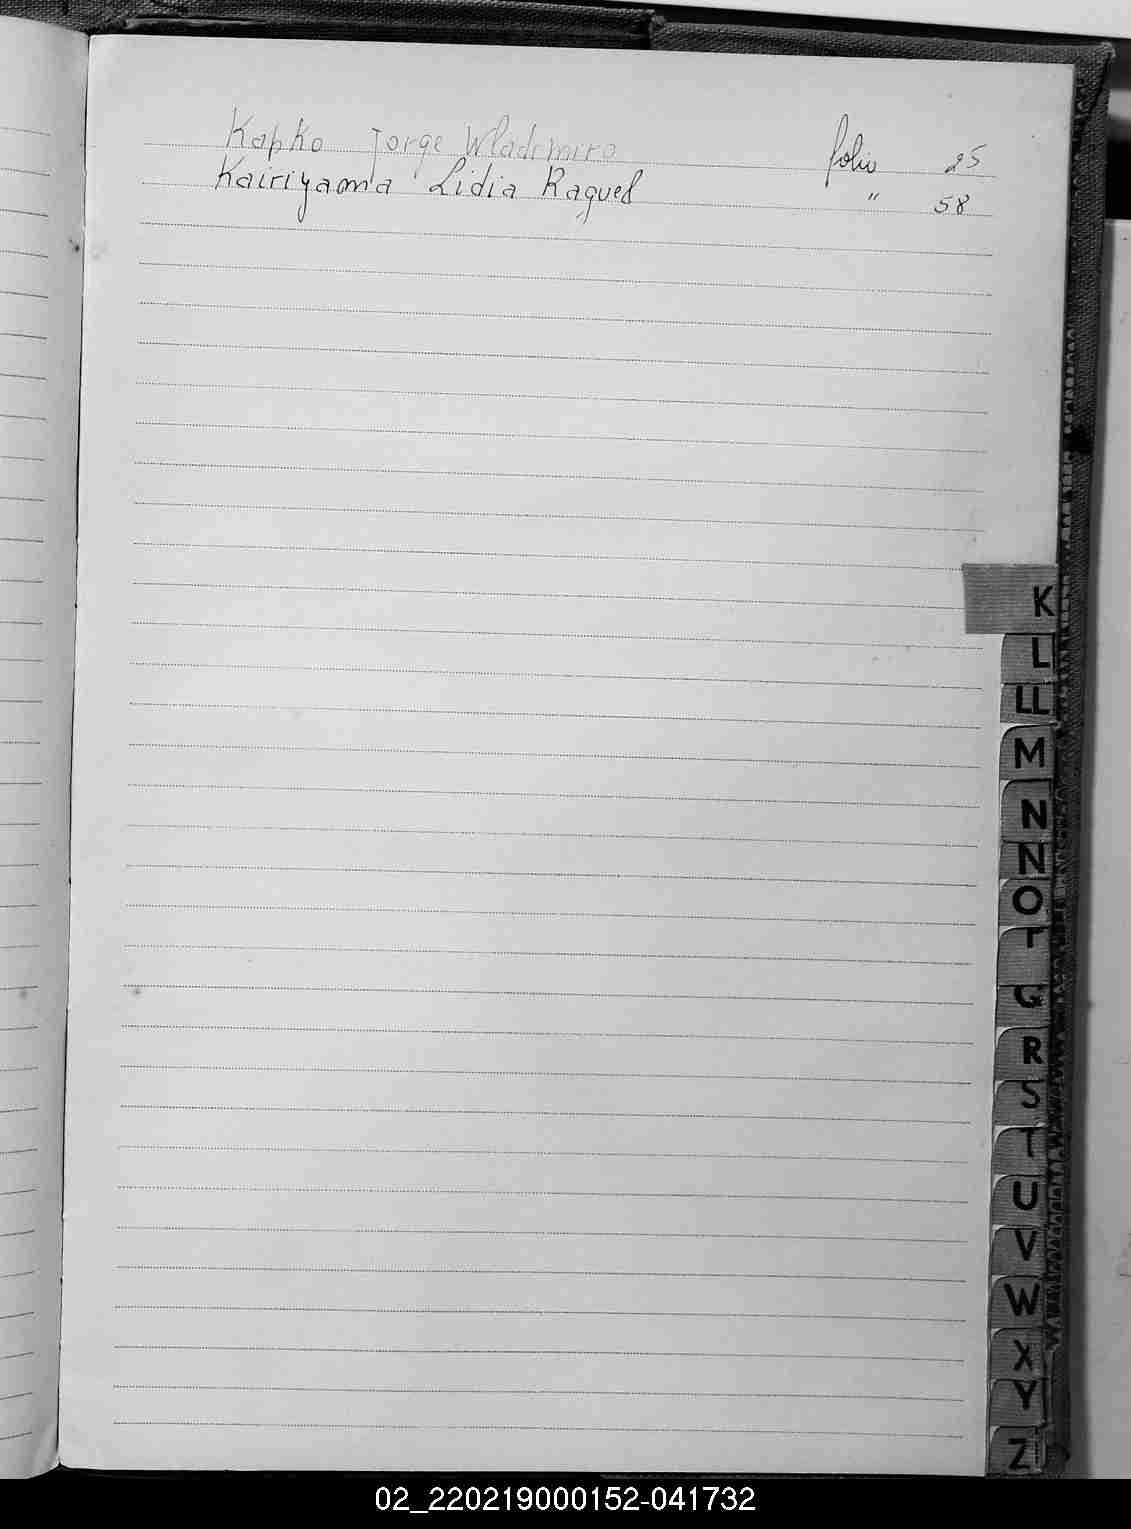 Kapko Jorge Wlademiro folio 25
Kairiyama Lidia Raquel " 58
K
L
LL
M
N
N
O
G
R
S
T
U
V
W
X
Y
Z
02_220219000152-041732